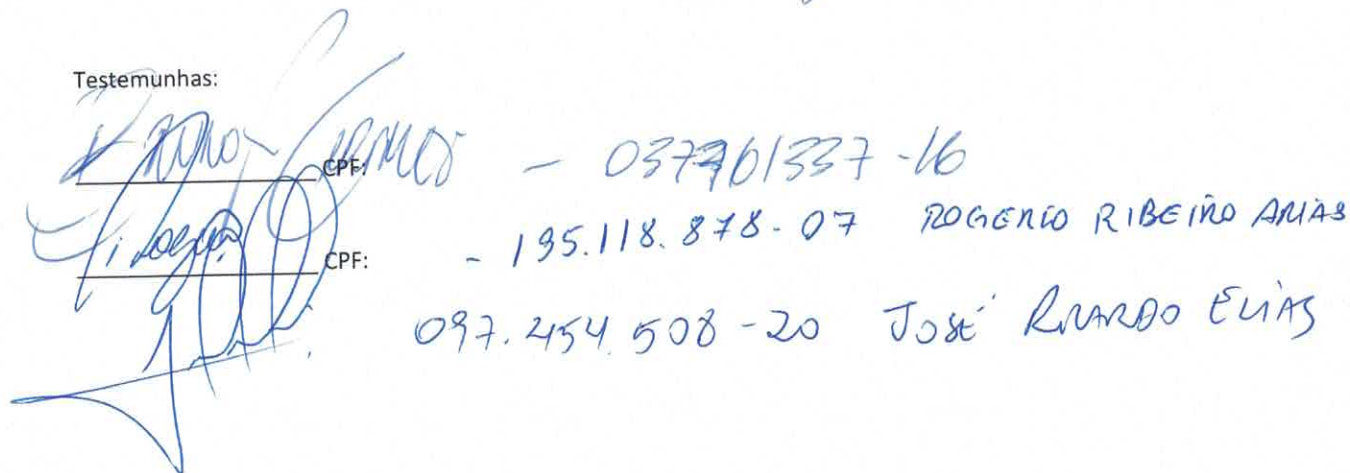 Testemunhas:
CPF: - 037761337-16
CPF: - 195.118.878-07 ROGERIO RIBEIRO ARIAS
097.454.508-20 JOSÉ RICARDO ELIAS